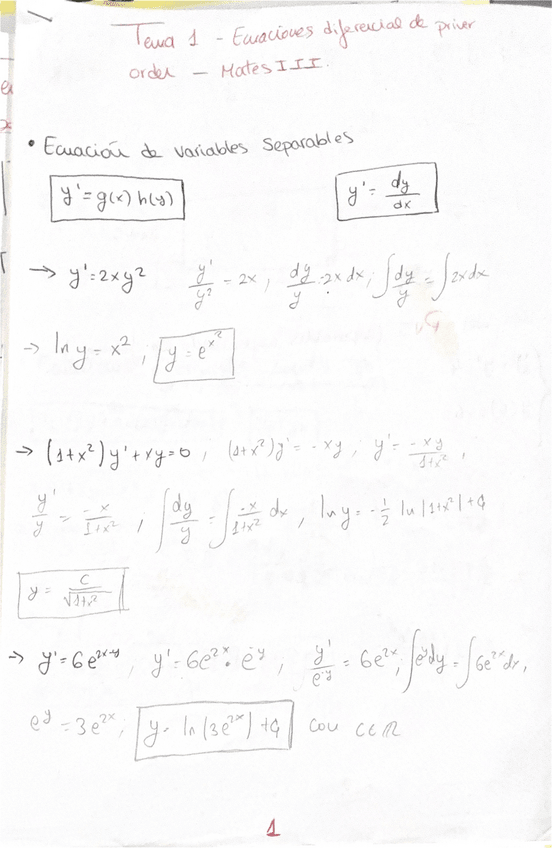 Tema 1 - Ecuaciones diferencial de primer
orden - Mates III.
• Ecuación de variables separables
y' = g(x) h(y)
y' = dy/dx
→ y' = 2xy² y'/y² = 2x ; dy/y = 2x dx ; ∫ dy/y = ∫ 2x dx
→ ln y = x² , y = e^x²
→ (1+x²) y' + xy = 0 ; (1+x²) y' = -xy ; y' = -xy/1+x² ,
y'/y = -x/1+x² ; ∫ dy/y = ∫ -x/1+x² dx , ln y = -1/2 ln |1+x²| + C₁
y = C/√1+x²
→ y' = 6e^2x-y , y' = 6e^2x · e^-y , y'/e^-y = 6e^2x ; ∫ e^y dy = ∫ 6e^2x dx ,
e^y = 3e^2x ; y = ln (3e^2x) + C₁ con C∈ℝ
1